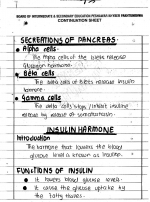 BOARD OF INTERMEDIATE & SECONDARY EDUCATION PESHAWAR
CONTINUATION SHEET
SECREATIONS OF PANCREAS:
Alpha cells:
The Alpha cells of the Islets release
Glucagon hormone.
Beta cells
The Beta cells of Islets release Insulin
hormone.
Gamma cells
The Delta cells stops / inhibit insulin
release by release of somatostatin.
INSULIN HARMONE
Introduction
The hormone that lowers the blood
glucose level is known as insulin.
FUNCTIONS OF INSULIN
It lowers blood glucose level.
It cause the glucose uptake by
the fatty tissues.